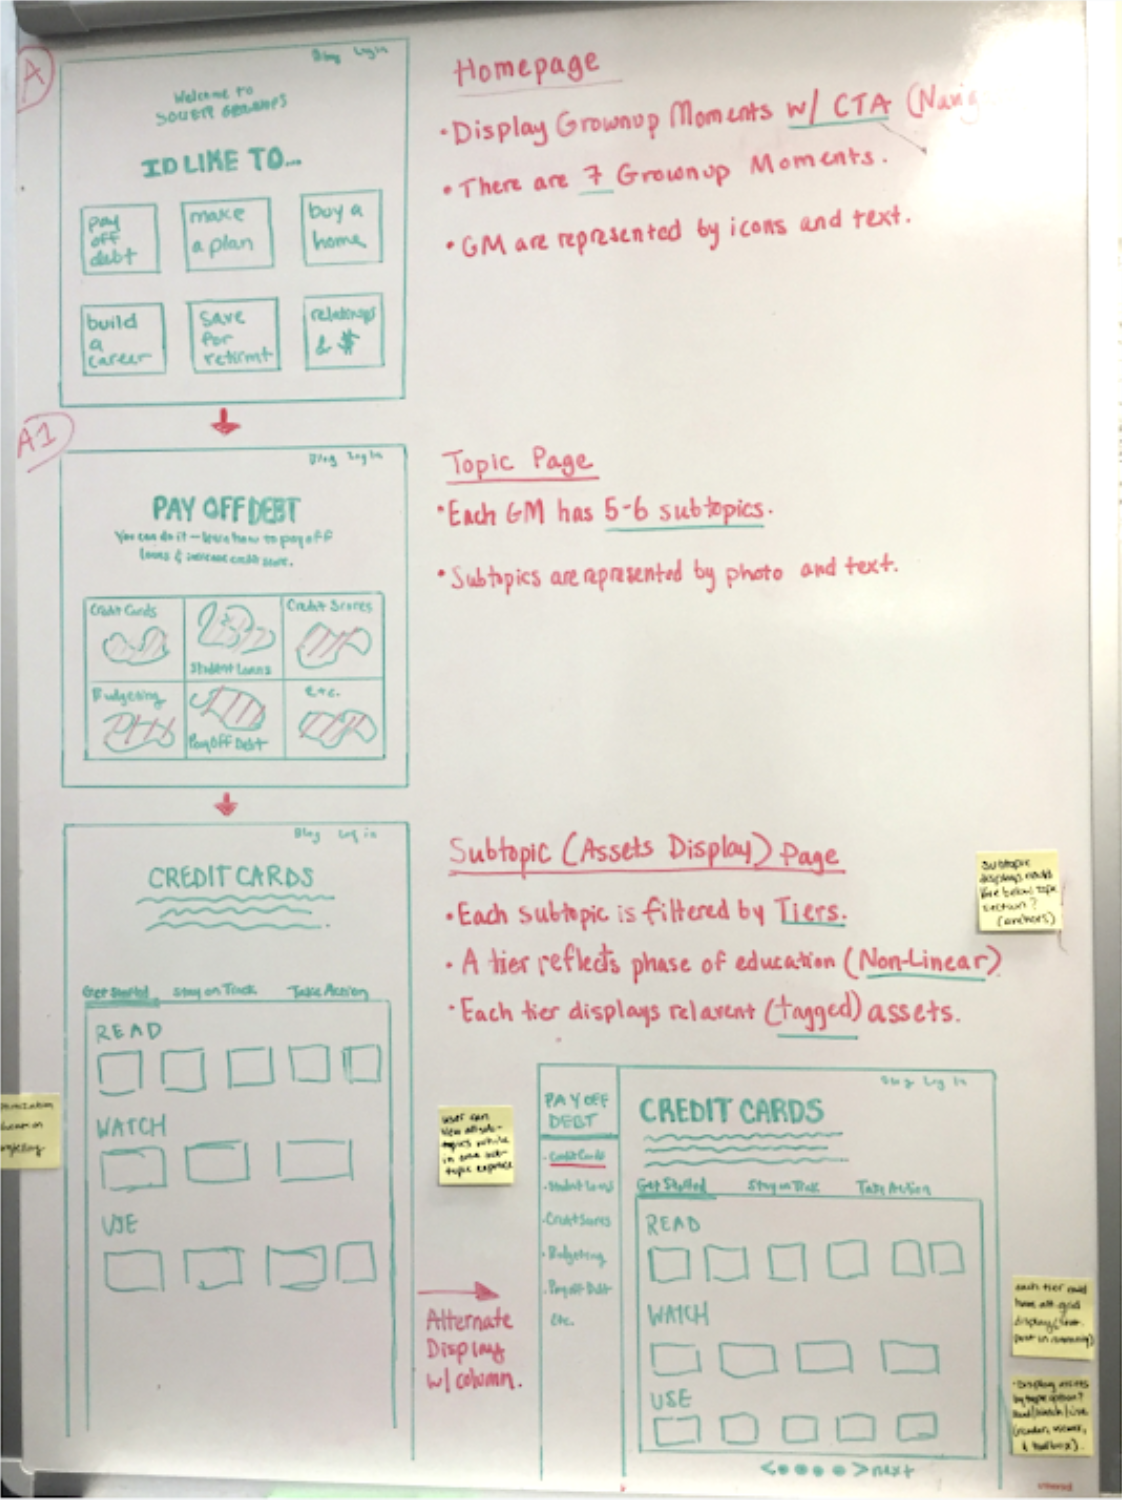 A
Blog Login
Welcome to
ID LIKE TO...
pay off debt
make a plan
buy a home
build a career
save for retirmt
& $
Homepage
• Display Grownup Moments w/ CTA
• There are 7 Grownup Moments.
• GM are represented by icons and text.
A1
Blog Log In
PAY OFF DEBT
You can do it - learn how to pay off
loans & increase credit score.
Credit Cards
Student Loans
Credit Scores
Budgeting
Pay Off Debt
Etc.
Topic Page
• Each GM has 5-6 subtopics.
• Subtopics are represented by photo and text.
Blog Log in
CREDIT CARDS
Get Started Stay on Track Take Action
READ
WATCH
USE
Subtopic (Assets Display) Page
• Each subtopic is filtered by Tiers.
• A tier reflects phase of education (Non-Linear)
• Each tier displays relavent (tagged) assets.
Subtopic
displays
below topic
section?
(anchors)
user can
view all sub-
topics while
in one sub-
topic
Alternate
Display
w/ column.
PAY OFF
DEBT
• Credit Cards
• Student Loans
• Credit Scores
• Budgeting
• Pay off Debt
Etc.
Blog Log In
CREDIT CARDS
Get Started Stay on Track Take Action
READ
WATCH
USE
< > next
each tier could
have alt. grid
display
• Display assets
by type option?
Read/Watch/Use
(reader, viewer,
& toolbox).